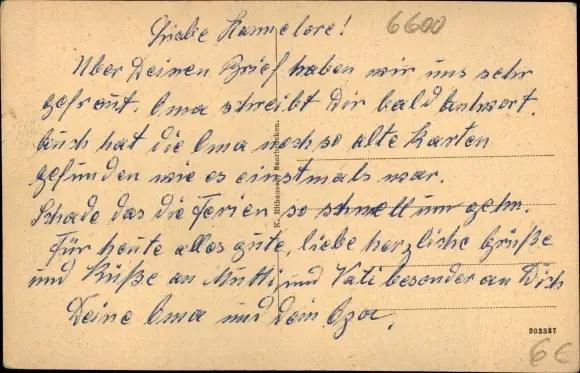 Liebe Hannelore!
6600
Über Deinen Brief haben wir uns sehr
gefreut. Oma schreibt Dir bald Antwort.
Auch hat die Oma noch so alte Karten
gefunden wie es einstmals war.
Schade das die Ferien so schnell um gehn.
Für heute alles gute, liebe herzliche Grüße
und Küße an Mutti, und Vati besonder an Dich
Deine Oma und Dein Opa.
K. Rithausen, Saarbrücken.
203337
6€